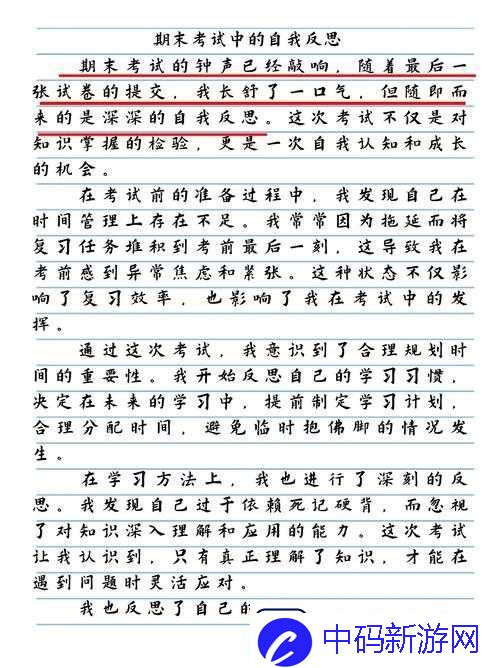 期末考试中的自我反思
期末考试的钟声已经敲响，随着最后一
张试卷的提交，我长舒了一口气，但随即而
来的是深深的自我反思。这次考试不仅是对
知识掌握的检验，更是一次自我认知和成长
的机会。
在考试前的准备过程中，我发现自己在
时间管理上存在不足。我常常因为拖延而将
复习任务堆积到考前最后一刻，这导致我在
考前感到异常焦虑和紧张。这种状态不仅影
响了复习效率，也影响了我在考试中的发
挥。
通过这次考试，我意识到了合理规划时
间的重要性。我开始反思自己的学习习惯，
决定在未来的学习中，提前制定学习计划，
合理分配时间，避免临时抱佛脚的情况发
生。
在学习方法上，我也进行了深刻的反
思。我发现自己过于依赖死记硬背，而忽视
了对知识深入理解和应用的能力。这次考试
让我认识到，只有真正理解了知识，才能在
遇到问题时灵活应对。
我也反思了自己的
中码新游网